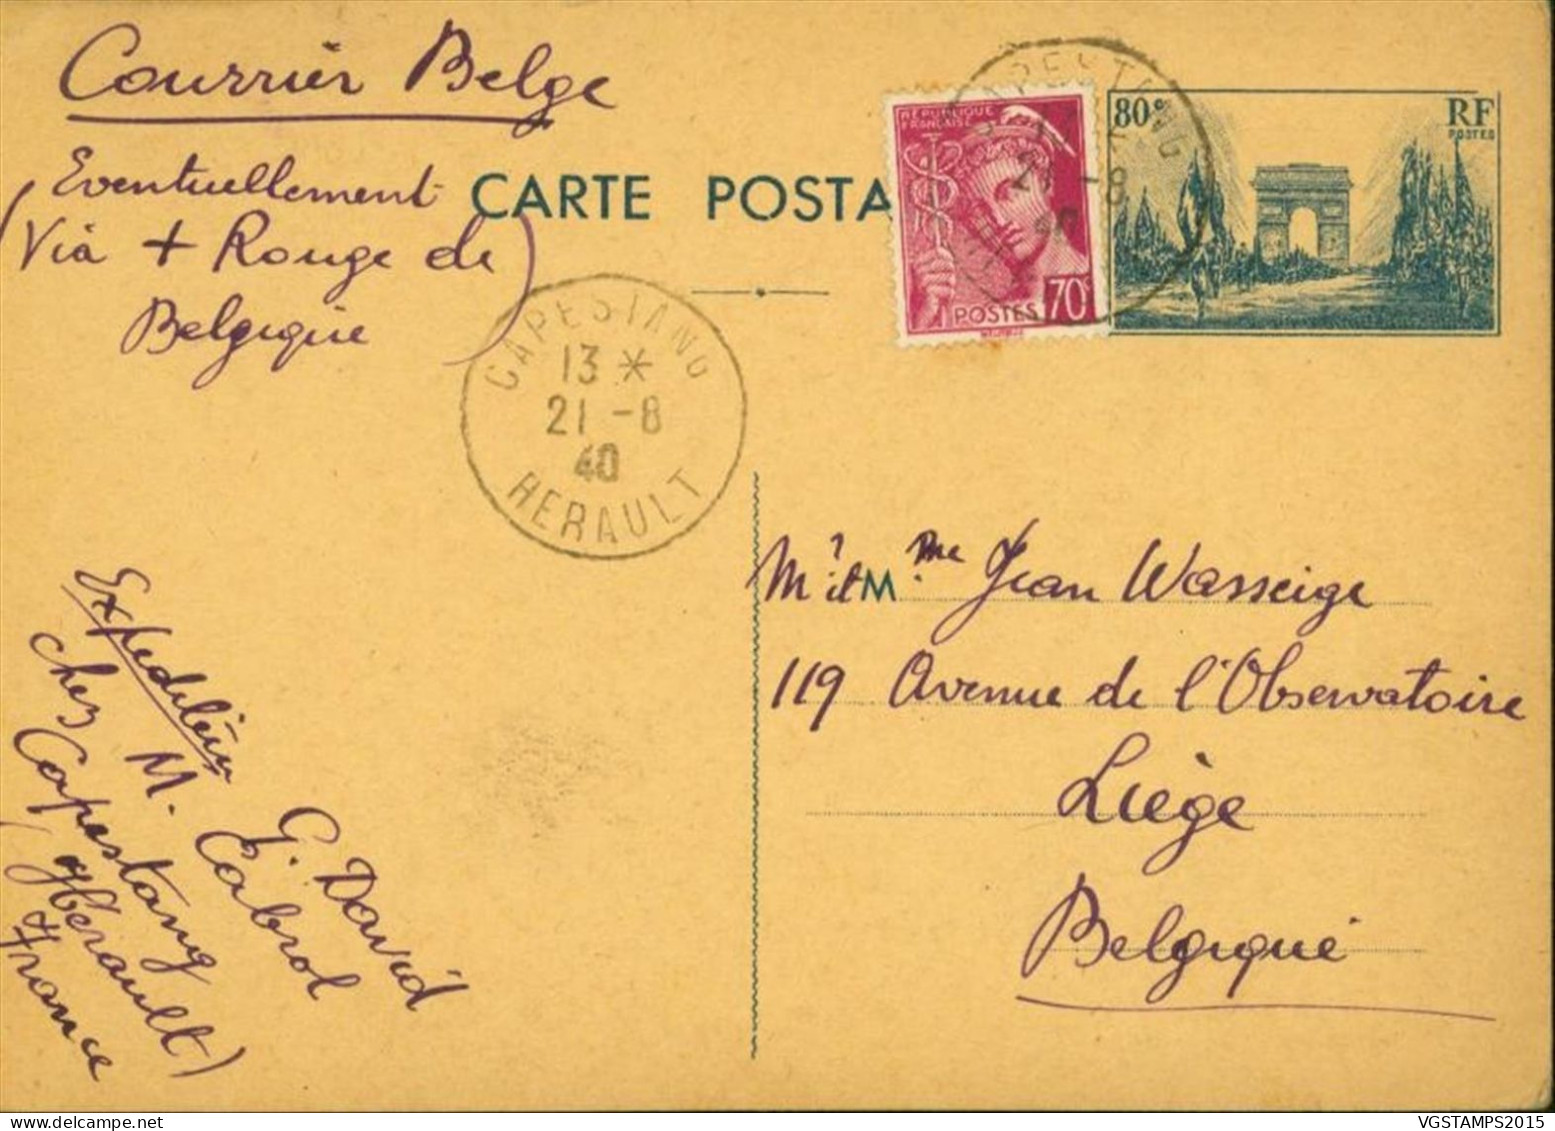 Courrier Belge
(Eventuellement
Via + Rouge de
Belgique)
CARTE POSTA
RÉPUBLIQUE
FRANÇAISE
POSTES 70c
80c
RF
POSTES
CAPESTANG
21 -8
40
CAPESTANG
13 *
21 -8
40
HERAULT
Mr et M.me Jean Wasseige
119 Avenue de l'Observatoire
Liège
Belgique
Expéditeur G. David
chez M. Cabrol
Capestang
(Hérault)
France
VGSTAMPS2015